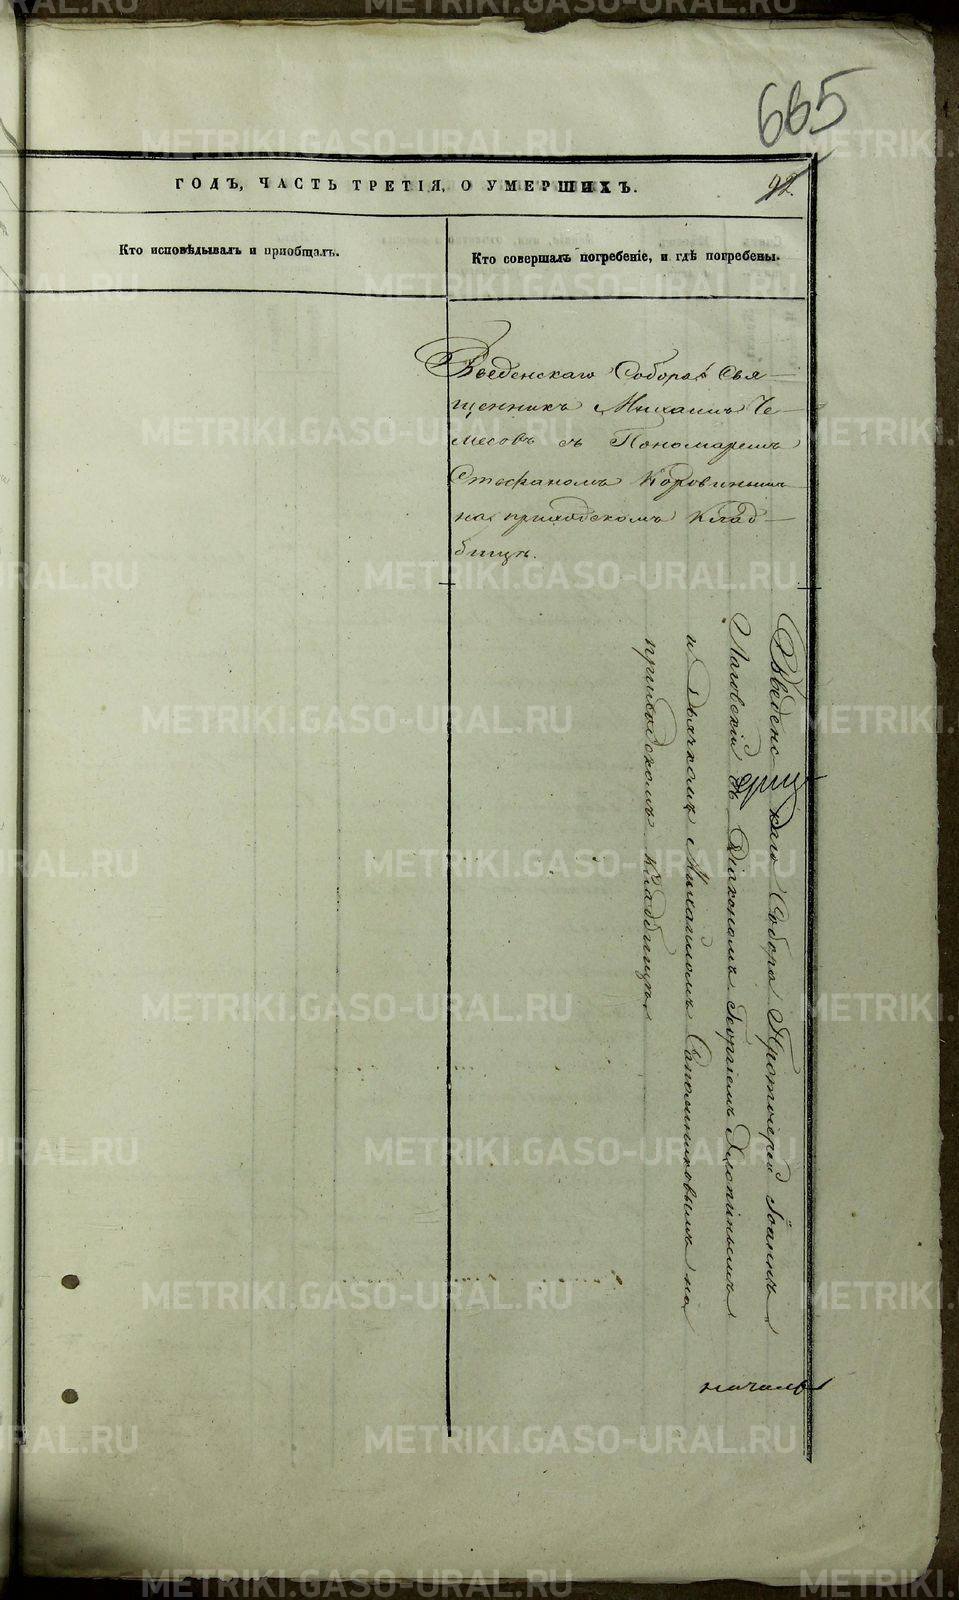 665
ГОДЪ, ЧАСТЬ ТРЕТІЯ, О УМЕРШИХЪ.
92
Кто исповѣдывалъ и пріобщалъ.
Кто совершалъ погребеніе, и гдѣ погребены.
Введенскаго Собора Свя-
щенникъ Михаилъ Че-
месовъ съ Пономаремъ
Стефаномъ Коровинымъ
на приходскомъ клад-
бищѣ.
Введенскаго Собора Протоіерей Іоаннъ
Лаговскій съ Діакономъ Георгіемъ Хлопинымъ
и Дьячкомъ Михаиломъ Сапожниковымъ на
приходскомъ кладбищѣ
METRIKI.GASO-URAL.RU